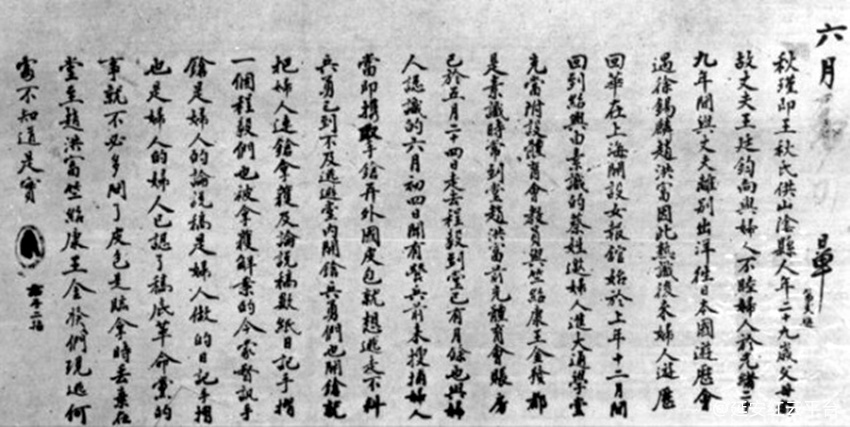 六月 單
秋瑾即王秋氏供山陰縣人年二十九歲父母
故丈夫王廷鈞向與婦人不睦婦人於光緒二
九年間與丈夫離別出洋往日本國遊歷會
遇徐錫麟趙洪富因此熟識後來婦人遊歷
回華在上海開設女報館始於上年十二月間
回到紹興由素識的蔡姓邀婦人進大通學堂
充當附設體育會教員與竺紹康王金發都
是素識時常到堂趙洪富前充體育會賬房
已於五月二十四日走去程毅到堂已有月餘也與婦
人認識的六月初四日聞有營兵前來搜捕婦人
當即攜取手鎗并外國皮包就想逃走不料
兵勇已到不及逃避堂內開鎗兵勇們也開鎗就
把婦人連鎗拿獲及論說稿數紙日記手摺
一個程毅們也被拿獲解案的今蒙督訊手
鎗是婦人的論說稿是婦人做的日記手摺
也是婦人的婦人已認了稿底革命黨的
事就不必多問了皮包是臨拿時丟棄在
堂至趙洪富竺紹康王金發們現逃何
處不知道是實